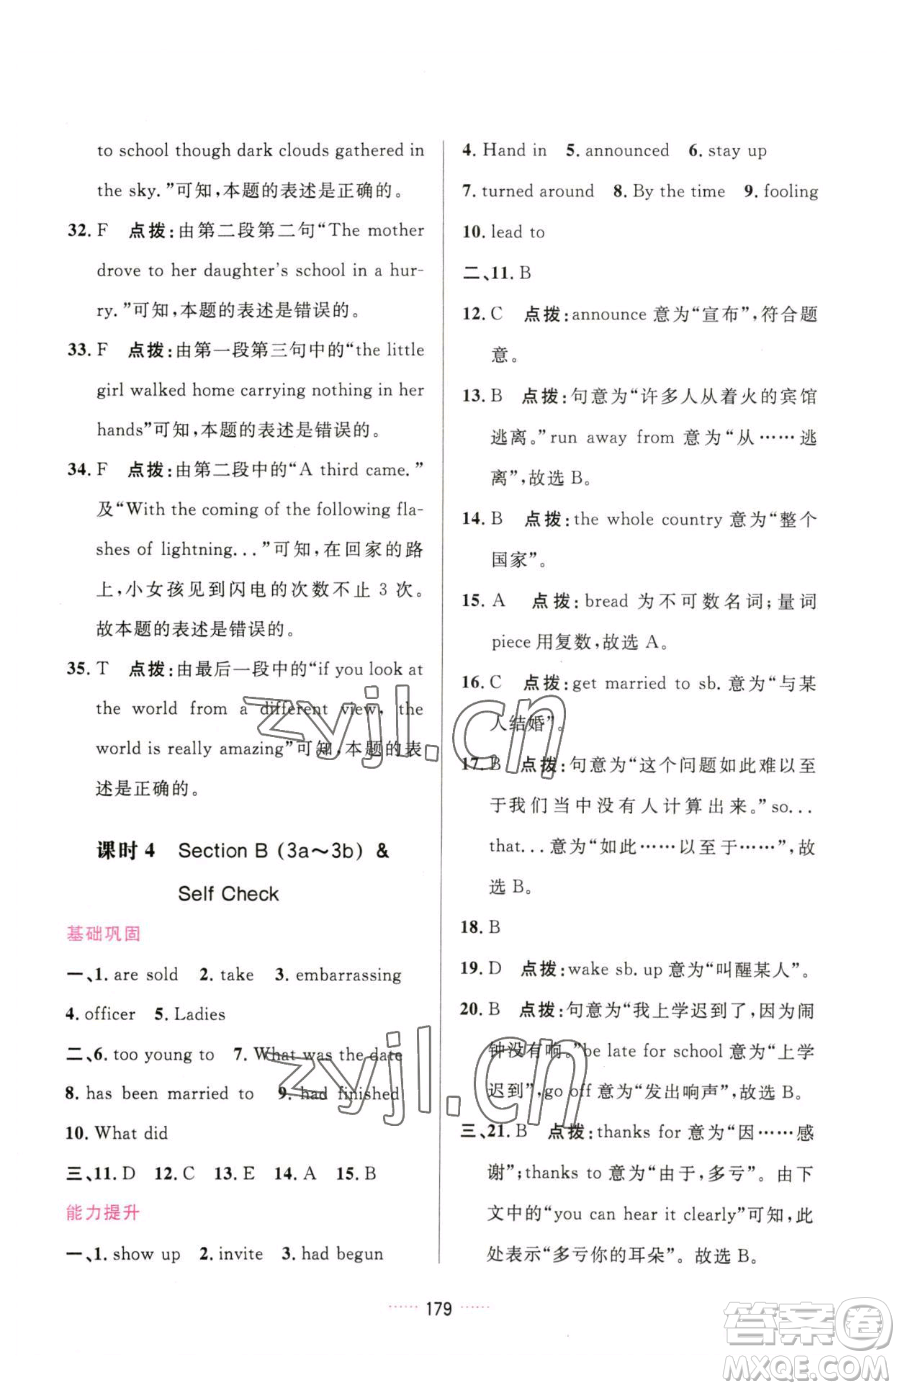 to school though dark clouds gathered in
the sky.”可知,本题的表述是正确的。
32. F 点拨:由第二段第二句“The mother
drove to her daughter's school in a hur-
ry.”可知,本题的表述是错误的。
33. F 点拨:由第一段第三句中的“the little
girl walked home carrying nothing in her
hands”可知,本题的表述是错误的。
34. F 点拨:由第二段中的“A third came.”
及“With the coming of the following fla-
shes of lightning...”可知,在回家的路
上,小女孩见到闪电的次数不止 3 次。
故本题的表述是错误的。
35. T 点拨:由最后一段中的“if you look at
the world from a different view, the
world is really amazing”可知,本题的表
述是正确的。
课时 4 Section B (3a～3b) &
Self Check
基础巩固
一、1. are sold 2. take 3. embarrassing
4. officer 5. Ladies
二、6. too young to 7. What was the date
8. has been married to 9. had finished
10. What did
三、11. D 12. C 13. E 14. A 15. B
能力提升
一、1. show up 2. invite 3. had begun
4. Hand in 5. announced 6. stay up
7. turned around 8. By the time 9. fooling
10. lead to
二、11. B
12. C 点拨:announce 意为“宣布”,符合题
意。
13. B 点拨:句意为“许多人从着火的宾馆
逃离。”run away from 意为“从……逃
离”,故选 B。
14. B 点拨:the whole country 意为“整个
国家”。
15. A 点拨:bread 为不可数名词;量词
piece 用复数,故选 A。
16. C 点拨:get married to sb. 意为“与某
人结婚”。
17. B 点拨:句意为“这个问题如此难以至
于我们当中没有人计算出来。”so...
that...意为“如此……以至于……”,故
选 B。
18. B
19. D 点拨:wake sb. up 意为“叫醒某人”。
20. B 点拨:句意为“我上学迟到了,因为闹
钟没有响。”be late for school 意为“上学
迟到”,go off 意为“发出响声”,故选 B。
三、21. B 点拨:thanks for 意为“因……感
谢”;thanks to 意为“由于,多亏”。由下
文中的“you can hear it clearly”可知,此
处表示“多亏你的耳朵”。故选 B。
179
zyjl.cn
zyjl.cn
答案圈
MXQE.COM